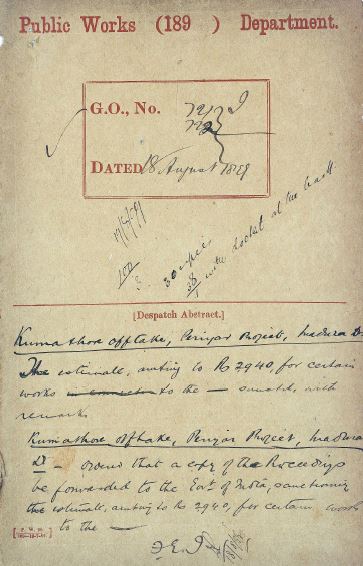 Public Works (189 ) Department.
G.O., No. 721
722
DATED 18 August 1899
17/8/99
100
3. 30 copies
38 with docket at the back
[Despatch Abstract.]
Kumathore offtake, Periyar Project, Madura Dt
The estimate, amtng to Rs 2940, for certain
works to the — sanctd, with
remarks
Kumathore offtake, Periyar Project, Madura
Dt — ordered that a copy of the Proceedings
be forwarded to the Govt of India, sanctioning
the estimate, amtng to Rs 2940, for certain works
to the —